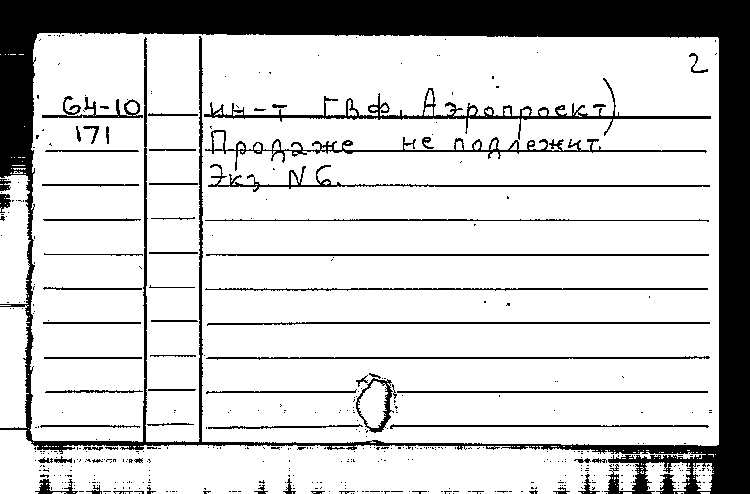 2
64-10 ин-т ГВФ. Аэропроект)
171 Продаже не подлежит.
Экз. N 6.